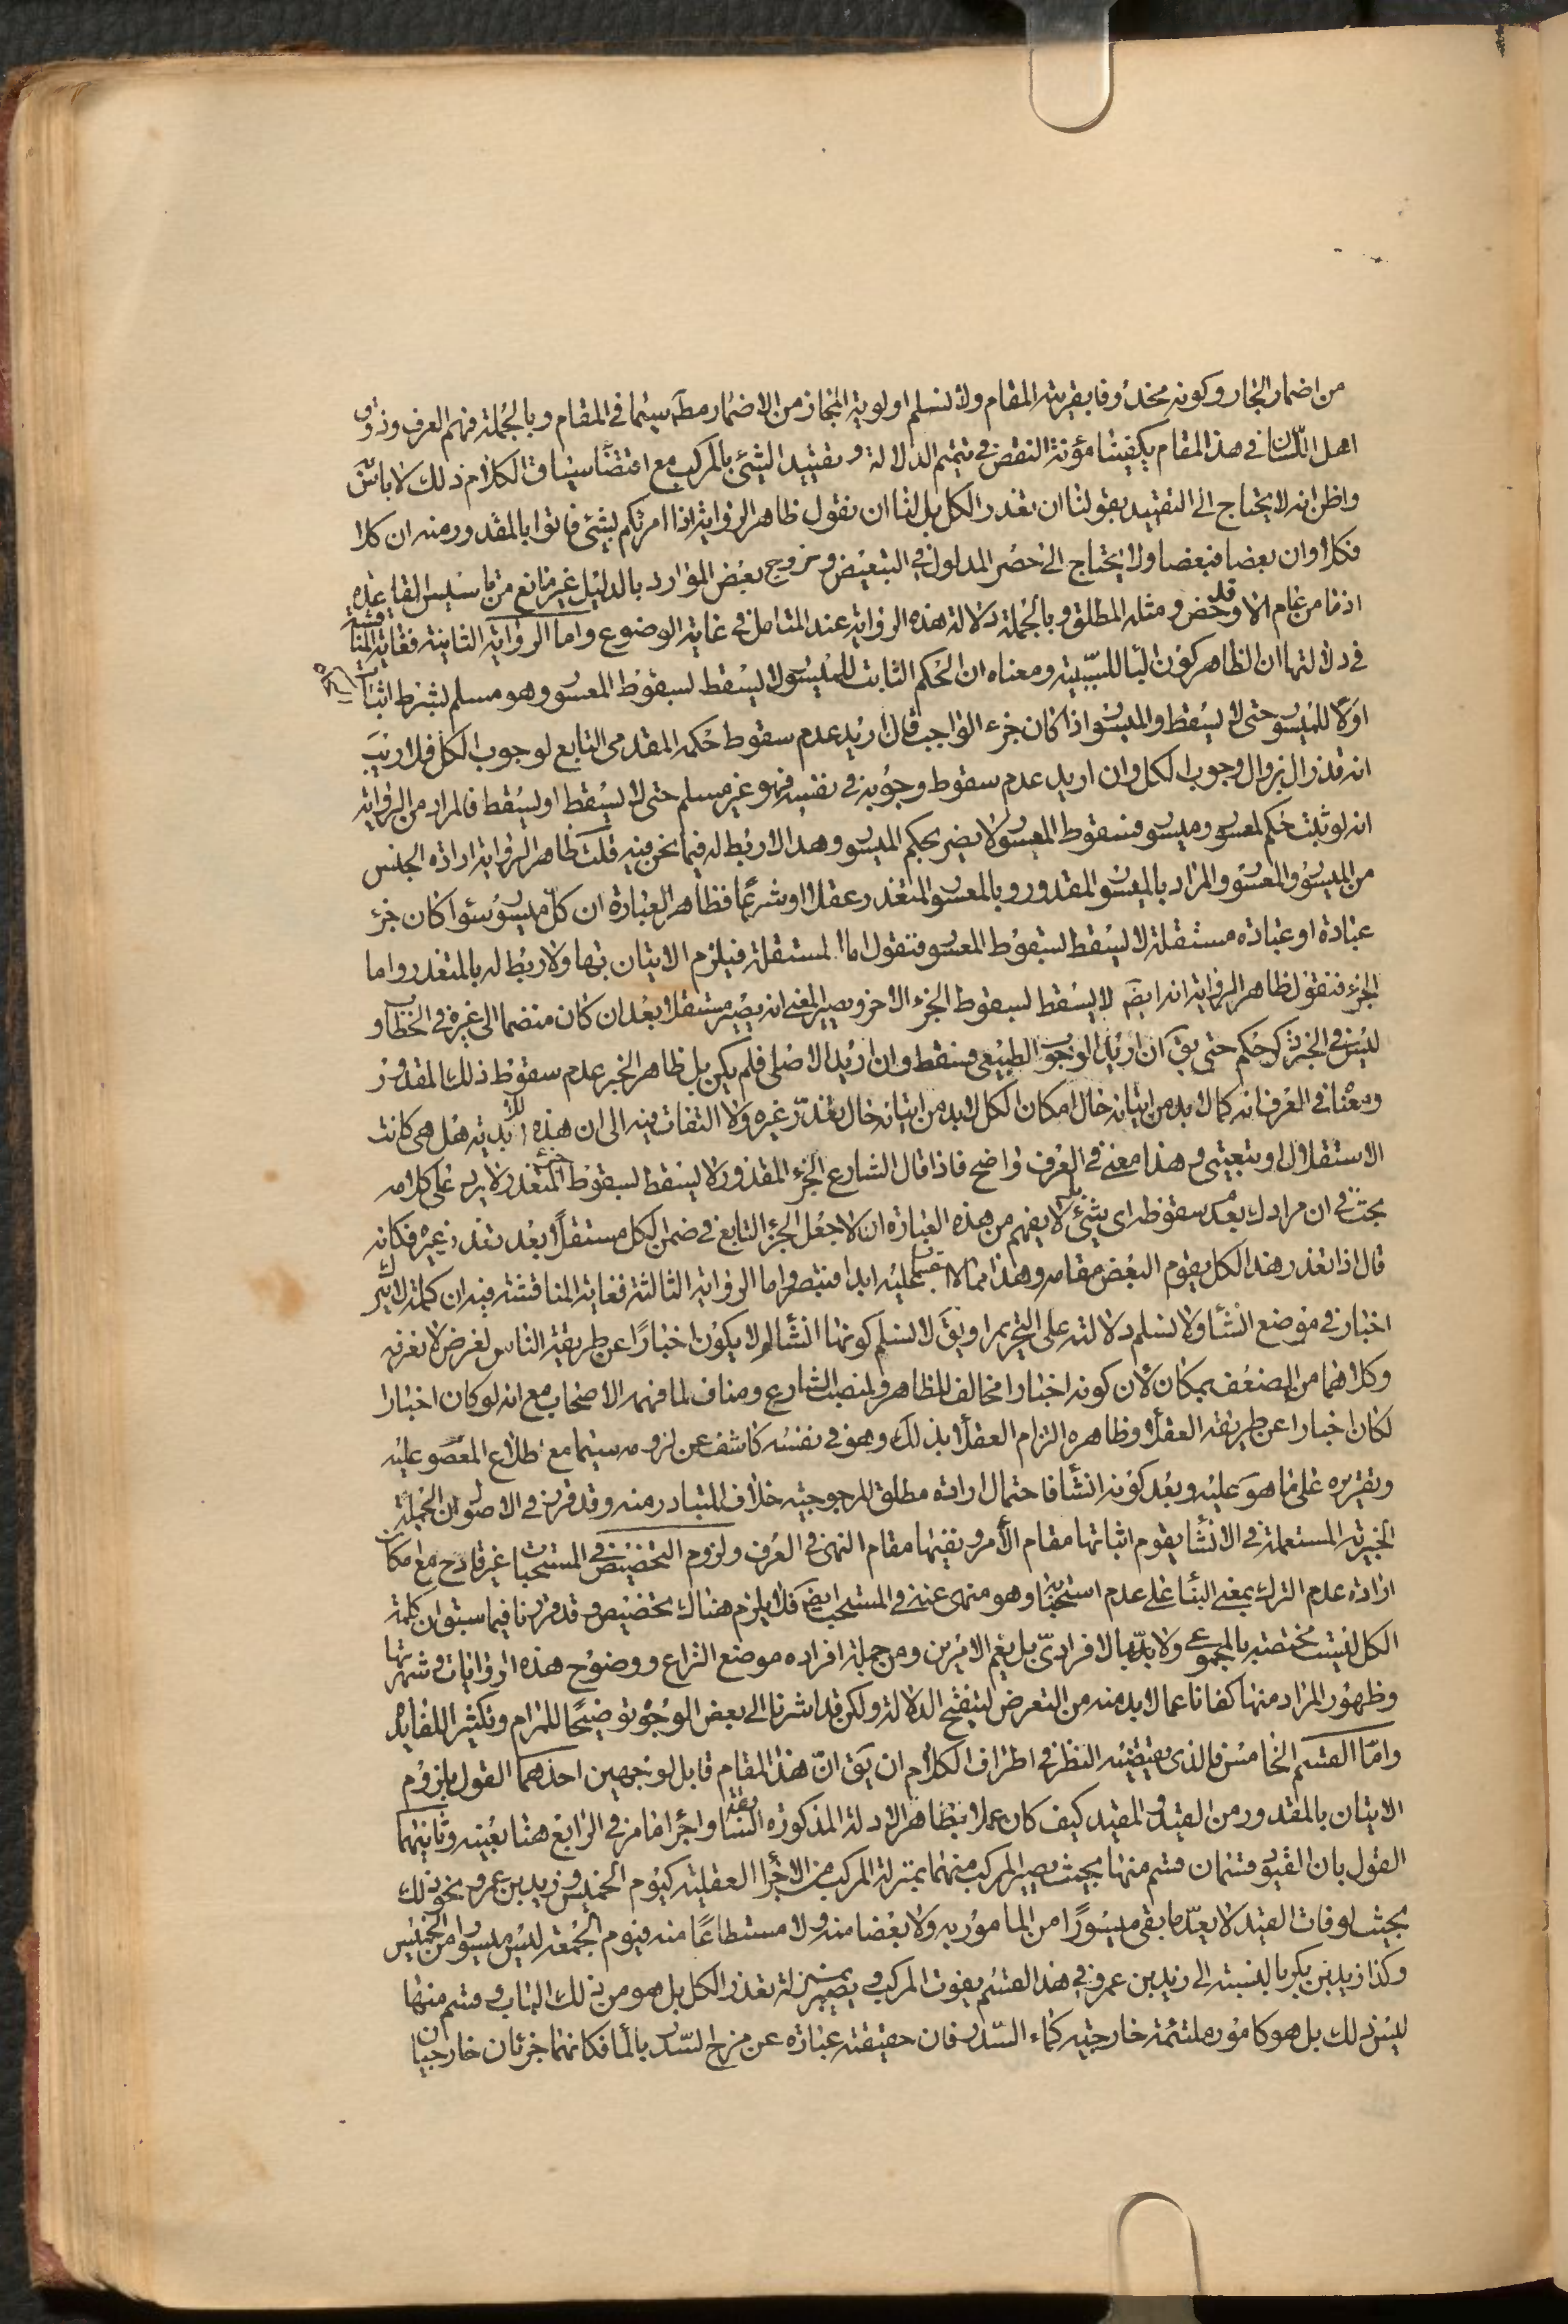 من اضمار الجار وكونه محذوفا بقرينة المقام ولا نسلم اولوية المجاز من الاضمار مطلقا سيما في المقام وبالجملة فهم العرف وذوق
اهل اللسان في هذا المقام يكفينا مؤنة النقض في تتميم الدلالة وتقييد الشئ بالمركب مع اقتضاء سياق الكلام ذلك لا باس به
واظن انه لا يحتاج الى التقييد بقولنا ان تعذر الكل بل لنا ان نقول ظاهر الرواية اذا امرتكم بشئ فاتوا بالمقدور منه ان كلا
فكلا وان بعضا فبعضا ولا يحتاج الى حصر المدلول في التبعيض وخروج بعض الموارد بالدليل غير مانع من تاسيس القاعدة
اذ ما من عام الا وقد خص ومثله المطلق وبالجملة دلالة هذه الرواية عند المتامل في غاية الوضوح واما الرواية الثانية فغاية المناقشة
في دلالتها ان الظاهر كون الباء للسببية ومعناه ان الحكم الثابت للميسور لا يسقط بسقوط المعسور وهو مسلم بشرط اثباته
اولا للميسور حتى لا يسقط والميسور اذا كان جزء الواجب فان اريد عدم سقوط حكمه المقدمى التابع لوجوب الكل فلا ريب
انه قد زال بزوال وجوب الكل وان اريد عدم سقوط وجوبه في نفسه فهو غير مسلم حتى لا يسقط او يسقط فالمراد من الرواية
انه لو ثبت حكم لمعسور وميسور فسقوط المعسور لا يضر بحكم الميسور وهذا لا ربط له فيما نحن فيه قلت ظاهر الرواية ارادة الجنس
من الميسور والمعسور والمراد بالميسور المقدور وبالمعسور المتعذر عقلا او شرعا فظاهر العبارة ان كل ميسور سواء كان جزء
عبادة او عبادة مستقلة لا يسقط بسقوط المعسور فنقول اما المستقلة فيلزم الاتيان بها ولا ربط له بالمتعذر واما
الجزء فنقول ظاهر الرواية انه ايضا لا يسقط بسقوط الجزء الاخر ويصير المعنى انه يصير مستقلا بعد ان كان منضما الى غيره في الخطاب و
ليس في الخبر ذكر حكم حتى يق ان اريد الوجوب الطبيعى فسقط وان اريد الاصلى فلم يكن بل ظاهر الخبر عدم سقوط ذلك المقدور
ومعناه في العرف انه كما لا بد من اتيانه حال امكان الكل لا بد من اتيانه حال تعذر غيره ولا التفات فيه الى ان هذه اللابدية هل هى كانت
الاستقلال او تبعيتى وهذا معنى في العرف واضح فاذا قال الشارع الجزء المقدور لا يسقط بسقوط الجزء المتعذر لا يرد على كلامه
بحث في ان مرادك بعدم سقوطه اى شئ بل لا يفهم من هذه العبارة الا جعل الجزء التابع في ضمن الكل مستقلا بعد تعذر غيره فكانه
قال اذا تعذر هذا الكل يقوم البعض مقامه وهذا مما لا غبار عليه ابدا فتبصر واما الرواية الثالثة فغاية المناقشة فيه ان كلمة لا يترك
اخبار في موضع انشاء ولا نسلم دلالته على التحريم او يق لا نسلم كونها انشاء لم لا يكون اخبارا عن طريقة الناس لغرض لا نعرفه
وكلاهما من الضعف بمكان لان كونه اخبارا مخالف للظاهر ولمنصب الشارع ومناف لما فهمه الاصحاب مع انه لو كان اخبارا
لكان اخبارا عن طريقة العقلاء وظاهره التزام العقلاء بذلك وهو في نفسه كاشف عن لزومه سيما مع اطلاع المعصوم عليه
وتقريره على ما هو عليه وبعد كونه انشاء فاحتمال ارادة مطلق المرجوحية خلاف المتبادر منه وقد قرر في الاصول ان الجملة
الخبرية المستعملة في الانشاء يقوم اثباتها مقام الامر ونفيها مقام النهى في العرف ولزوم التخصيص في المستحبات غير قادح مع امكان
ارادة عدم الترك بمعنى البناء على عدم استحبابه وهو منهى عنه في المستحبات ايضا فلا يلزم هناك تخصيص وقد قررنا فيما سبق ان كلمة
الكل ليست مختصة بالمجموعى ولا بالافرادى بل يعم الامرين ومن جملة افراده موضع النزاع ووضوح هذه الروايات وشهرتها
وظهور المراد منها كفانا عما لا بد منه من التعرض لتنقيح الدلالة ولكن قد اشرنا الى بعض الوجوه توضيحا للمرام وتكثيرا للفايدة
واما القسم الخامس فالذى يقتضيه النظر في اطراف الكلام ان يق ان هذا المقام قابل لوجهين احدهما القول بلزوم
الاتيان بالمقدور من القيد والمقيد كيف كان عملا بظاهر الادلة المذكورة السابقة واجراء ما مر في الرابع هنا بعينه وثانيهما
القول بان القيود قسمان قسم منها بحيث يصير المركب منهما بمنزلة المركب من الاجزاء العقلية كيوم الخميس وزيد بن عمرو ونحو ذلك
بحيث لو فات القيد لا يعد ما بقى ميسورا من المامور به ولا بعضا منه ولا مستطاعا منه فيوم الجمعة ليس ميسورا من الخميس
وكذا زيد بن بكر بالنسبة الى زيد بن عمرو في هذا القسم يفوت المركب ويصير بمنزلة تعذر الكل بل هو من ذلك الباب وقسم منها
ليس ذلك بل هو كامور ملتئمة خارجية كماء السدر فان حقيقته عبارة عن مزج السدر بالماء فكانهما جزئان خارجيان